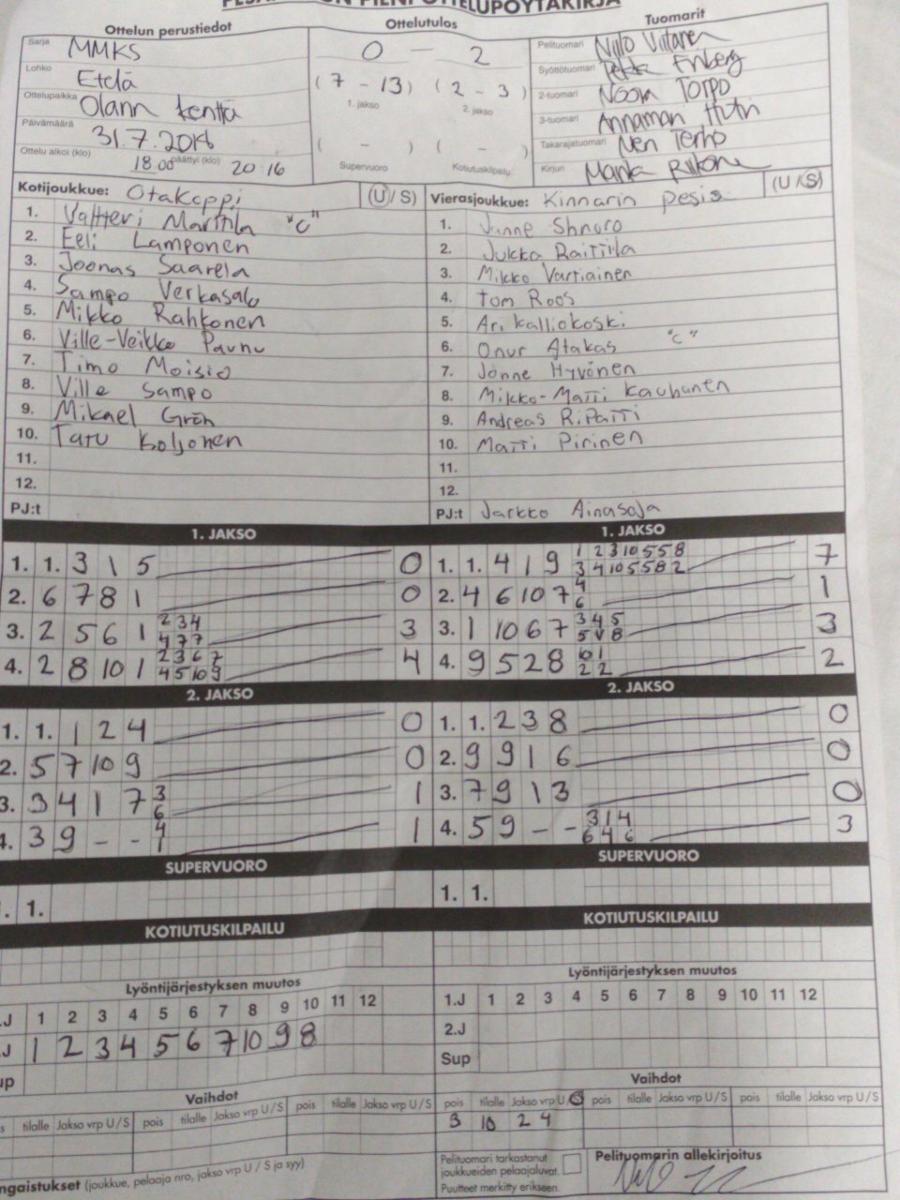 Ottelun perustiedot
Sarja MMKS
Lohko Etelä
Ottelupaikka Olarin kenttä
Päivämäärä 31.7.2014
Ottelu alkoi (klo) 18.00 päättyi (klo) 20.16
Ottelutulos
0 - 2
(7 - 13) (2 - 3)
1. jakso 2. jakso
( - ) ( - )
Supervuoro Kotiutuskilpailu
Tuomarit
Pelituomari Niilo Viitanen
Syöttötuomari Pekka
2-tuomari Noora Torpo
3-tuomari
Takarajatuomari Terho
Kirjuri
Kotijoukkue: Otakoppi (U/S)
1. Valtteri Marttila "C"
2. Eeli Lamponen
3. Joonas Saarela
4. Sampo Verkasalo
5. Mikko Rahkonen
6. Ville-Veikko Paunu
7. Timo Moisio
8. Ville Sampo
9. Mikael Grön
10. Taru Koljonen
11.
12.
PJ:t
Vierasjoukkue: Kinnarin Pesis (U/S)
1. Janne Shnoro
2. Jukka Raitila
3. Mikko Vartiainen
4. Tom Roos
5. Ari Kalliokoski
6. Onur Atakas "C"
7. Jonne Hyvönen
8. Mikko-Matti Kauhanen
9. Andreas Ripatti
10. Matti Pirinen
11.
12.
PJ:t Jarkko Ainasoja
1. JAKSO
1. 1. 3 1 5 0
2. 6 7 8 1 0
3. 2 5 6 1 2 3 4 3
4 7 7
4. 2 8 10 1 2 3 6 7 4
4 5 10 9
1. JAKSO
1. 1. 4 1 9 1 2 3 10 5 5 8 7
3 4 10 5 5 8 2
2. 4 6 10 7 4 1
6
3. 1 10 6 7 3 4 5 3
5 8
4. 9 5 2 8 10 1 2
2 2
2. JAKSO
1. 1. 1 2 4 0
2. 5 7 10 9 0
3. 3 4 1 7 3 1
6
4. 3 9 - - 4 1
1
2. JAKSO
1. 1. 2 3 8 0
2. 9 9 1 6 0
3. 7 9 1 3 0
4. 5 9 - - 3 1 4 3
6 4 6
SUPERVUORO
. 1.
SUPERVUORO
1. 1.
KOTIUTUSKILPAILU
KOTIUTUSKILPAILU
Lyöntijärjestyksen muutos
.J 1 2 3 4 5 6 7 8 9 10 11 12
J 1 2 3 4 5 6 7 10 9 8
up
Lyöntijärjestyksen muutos
1.J 1 2 3 4 5 6 7 8 9 10 11 12
2.J
Sup
Vaihdot
s tilalle Jakso vrp U/S pois tilalle Jakso vrp U/S pois tilalle Jakso vrp U/S
Vaihdot
pois tilalle Jakso vrp U/S pois tilalle Jakso vrp U/S pois tilalle Jakso vrp U/S
3 10 2 4
ngaistukset (joukkue, pelaaja nro, jakso vrp U / S ja syy)
Pelituomari tarkastanut
joukkueiden pelaajaluvat.
Puutteet merkitty erikseen.
Pelituomarin allekirjoitus